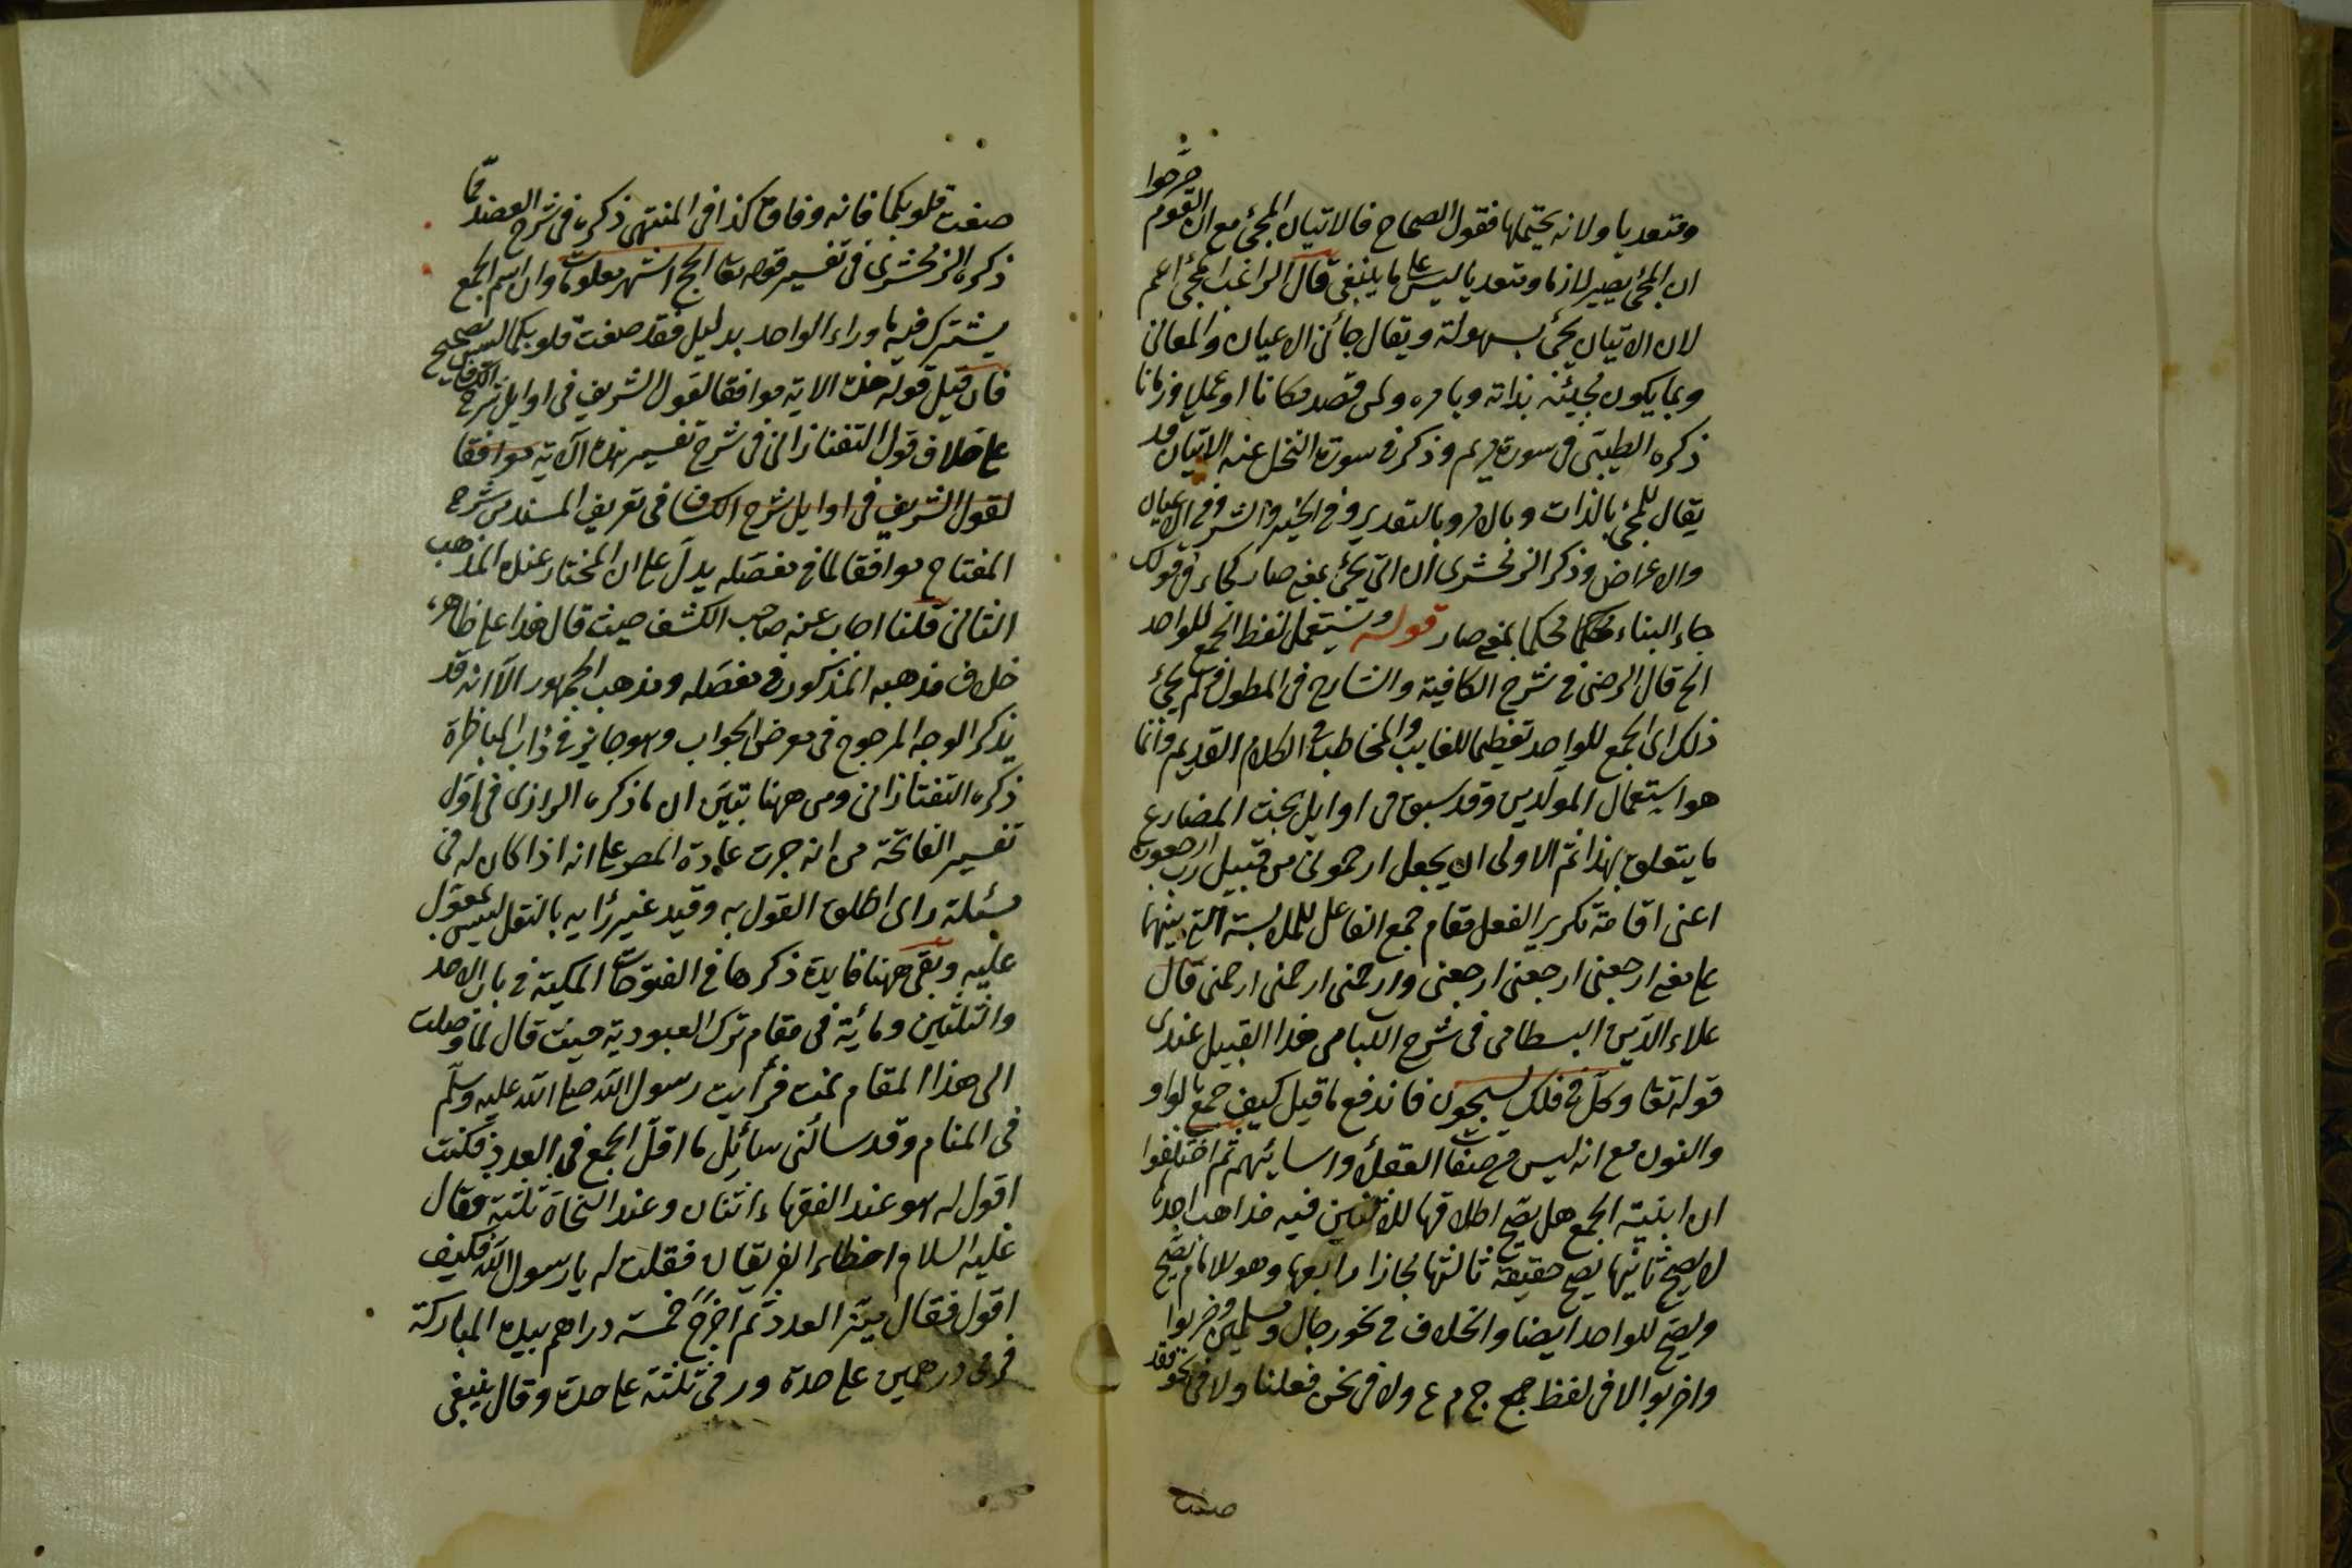 ومتعديا ولانه يحتملها فقول الصحاح فالاتيان المجئ مع ان القوم صرحوا
ان المجئ يصير لازما ومتعديا ليس على ما ينبغى قال الراغب المجئ اعم
لان الاتيان مجئ بسهولة ويقال جاء فى الاعيان والمعانى
وبما يكون مجيئه بذاته وبامره ولمن قصد مكانا او عملا وزمانا
ذكره الطيبى فى سورة مريم وذكر فى سورة النحل عنه الاتيان قد
يقال للمجئ بالذات وبالامر وبالتدبير وفى الخير والشر وفى الاعيان
والاعراض وذكر الزمخشرى ان اتى يجئ بمعنى صار كجاء فى قولك
جاء البناء محكما بمعنى صار قوله ويستعمل لفظ الجمع للواحد
الخ قال الرضى فى شرح الكافية والشارح فى المطول لم يجئ
ذلك اى الجمع للواحد تعظيما للغايب والمخاطب فى الكلام القديم وانما
هو استعمال المولدين وقد سبق فى اوايل بحث المضارع
ما يتعلق بهذا ثم الاولى ان يجعل ارحمونى من قبيل رب ارجعون
اعنى اقامة تكرير الفعل مقام جمع الفاعل للملابسة التى بينهما
على معنى ارجعنى ارجعنى ارجعنى وارحمنى ارحمنى ارحمنى قال
علاء الدين البسطامى فى شرح اللباب من هذا القبيل عندى
قوله تعا وكل فى فلك يسبحون فاندفع ما قيل كيف جمع بالواو
والنون مع انه ليس من صفات العقلاء واسمائهم ثم اختلفوا
ان ابنية الجمع هل يصح اطلاقها للاثنين فيه مذاهب احدها
لا يصح ثانيها يصح حقيقة ثالثها مجازا رابعها وهو للامام يصح
ويصح للواحد ايضا والخلاف فى نحو رجال ومسلمين وضربوا
واضربوا لا فى لفظ جمع ج م ع ولا فى نحن فعلنا ولا فى نحو فقد
صغت
صغت قلوبكما فانه وفاق كذا فى المنتهى ذكره فى شرح العضد مما
ذكره الزمخشرى فى تفسير قوله تعا الحج اشهر معلومات وان اسم الجمع
يشترك فيه ما وراء الواحد بدليل فقد صغت قلوبكما ليس بصحيح
فان قيل قوله هذه الاية موافقا لقول الشريف فى اوايل شرح الكشاف
على خلاف قول التفتازانى فى شرح تفسير هذه الآية موافقا
لقول الشريف فى اوايل شرح الكشاف فى تعريف المسند من شرح
المفتاح موافقا لما فى مفصله يدل على ان المختار عنده المذهب
الثانى قلنا اجاب عنه صاحب الكشف حيث قال هذا على ظاهره
خلاف مذهبه المذكور فى مفصله ومذهب الجمهور الا انه قد
يذكر الوجه المرجوح فى معرض الجواب وهو جايز فى داب المناظرة
ذكره التفتازانى ومن ههنا تبين ان ما ذكره الرازى فى اول
تفسير الفاتحة من انه جرت عادة المص على انه اذا كان له فى
مسئلة راى اطلق القول به وقيد غير رايه بالنقل ليس بمعول
عليه وبقى ههنا فايدة ذكرها فى الفتوحات المكية فى باب الاحد
والثلثين ومائة فى مقام ترك العبودية حيث قال لما وصلت
الى هذا المقام نمت فرأيت رسول الله صلى الله عليه وسلم
فى المنام وقد سالنى سائل ما اقل الجمع فى العدد فكنت
اقول له هو عند الفقهاء اثنان وعند النحاة ثلثة فقال
عليه السلام اخطاء الفريقان فقلت له يا رسول الله فكيف
اقول فقال ميز العدد ثم اخرج خمسة دراهم بيده المباركة
فرمى درهمين على حدة ورمى ثلثة على حدة وقال ينبغى